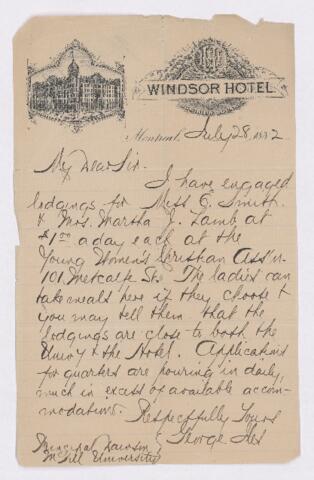 WINDSOR HOTEL
Montreal, July 28, 1882
My Dear Sir.
I have engaged
lodgings for Miss E. Smith
& Mrs. Martha J. Lamb at
$1.00 a day each at the
Young Women's Christian Ass'n.
101 Metcalfe St. The ladies can
take meals here if they choose &
you may tell them that the
lodgings are close to both the
Univ'y & the Hotel. Applications
for quarters are pouring in daily,
much in excess of available accom-
modations.
Respectfully Yours
George
Principal Dawson
McGill University